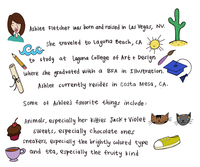 Ashlee Fletcher was born and raised in Las Vegas, NV.
She traveled to Laguna Beach, CA
to study at Laguna College of Art + Design
where she graduated with a BFA in Illustration.
Ashlee currently resides in Costa Mesa, CA.
Some of Ashlee's favorite things include:
Animals, especially her kitties Jack + Violet
sweets, especially chocolate ones
sneakers, especially the brightly colored type
and tea, especially the fruity kind